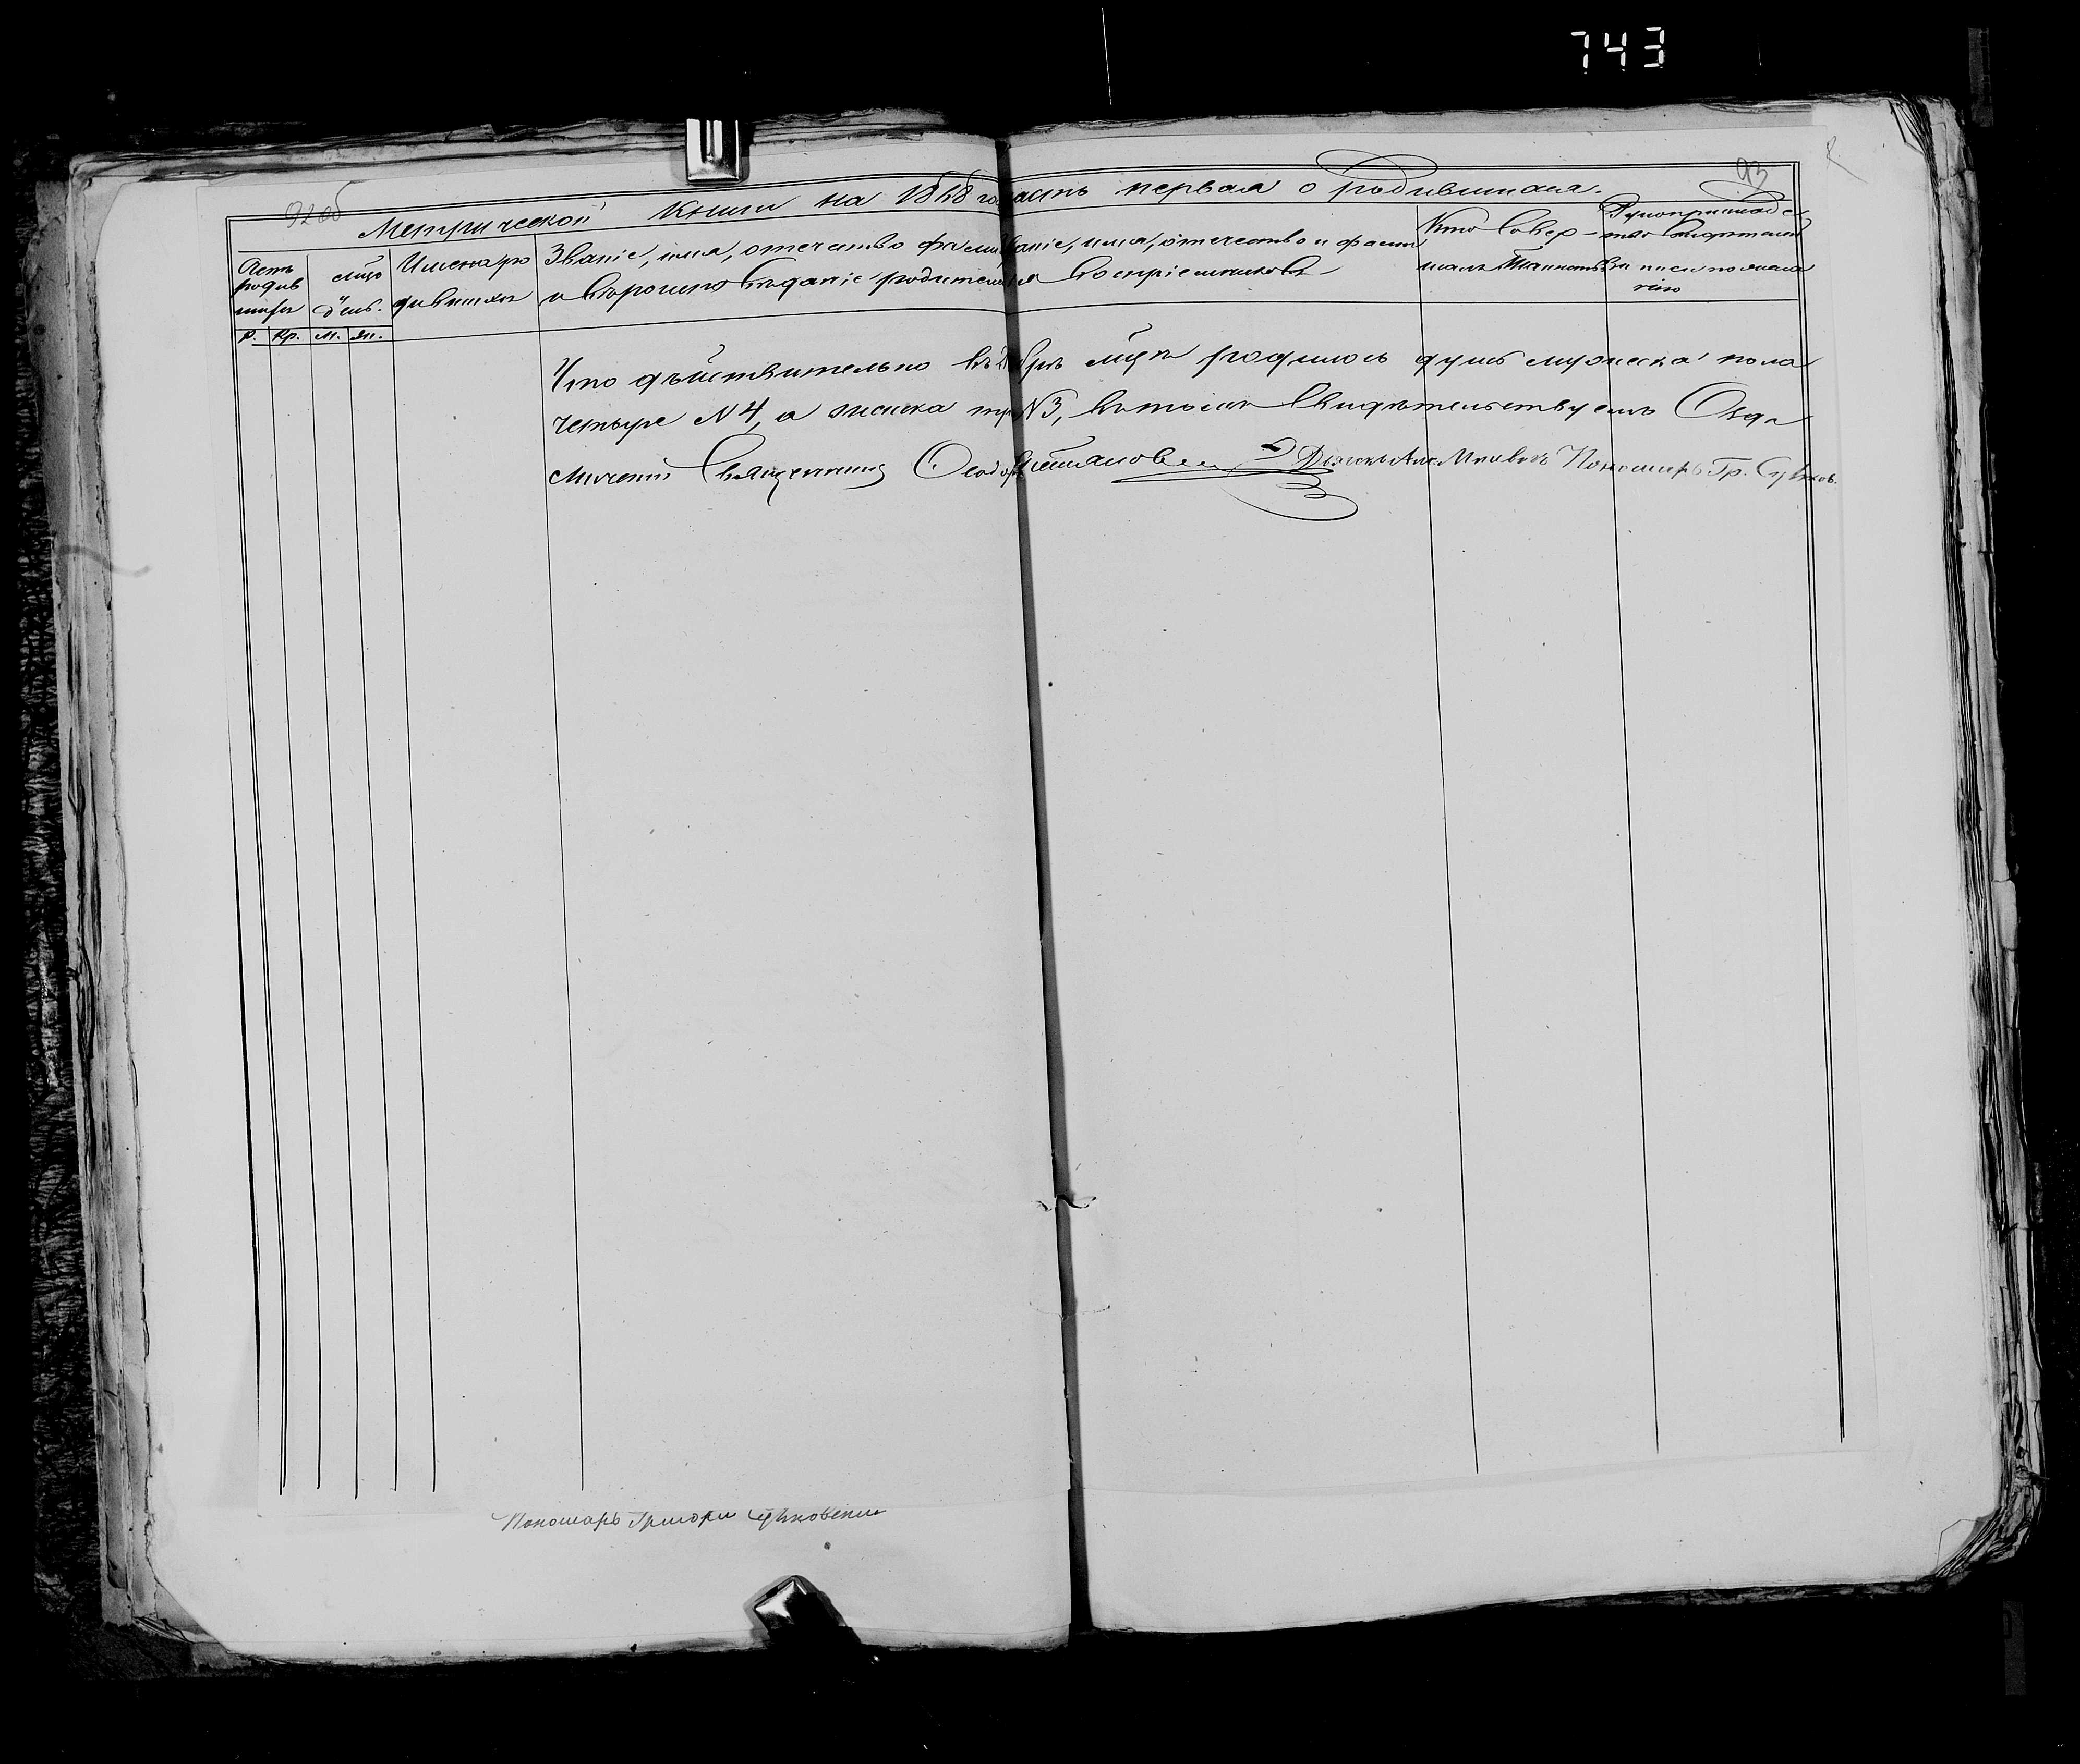 743
92 об
93
Метрической Книги на 1868 го асть первая о родившихся.
Счетъ родив шихся
М-цъ и день.
Имена ро дившихся
Званіе, имя, отечество фамилі
и вѣроисповѣданіе родителей
Званіе, имя, отечество и фамил
воспріемниковъ
Кто совер-
шалъ Таинство
Рукоприкладс-
тво свидѣтелей
записи по жела
нію
Р. Кр. М. Дн.
Что дѣйствительно въ мцѣ родилось душъ мужеска пола
четыре N 4, а женска три N 3, въ томъ свидѣтельствуемъ
Священникъ Ѳеодоръ Пономарь Гр.
Пономарь Григорій